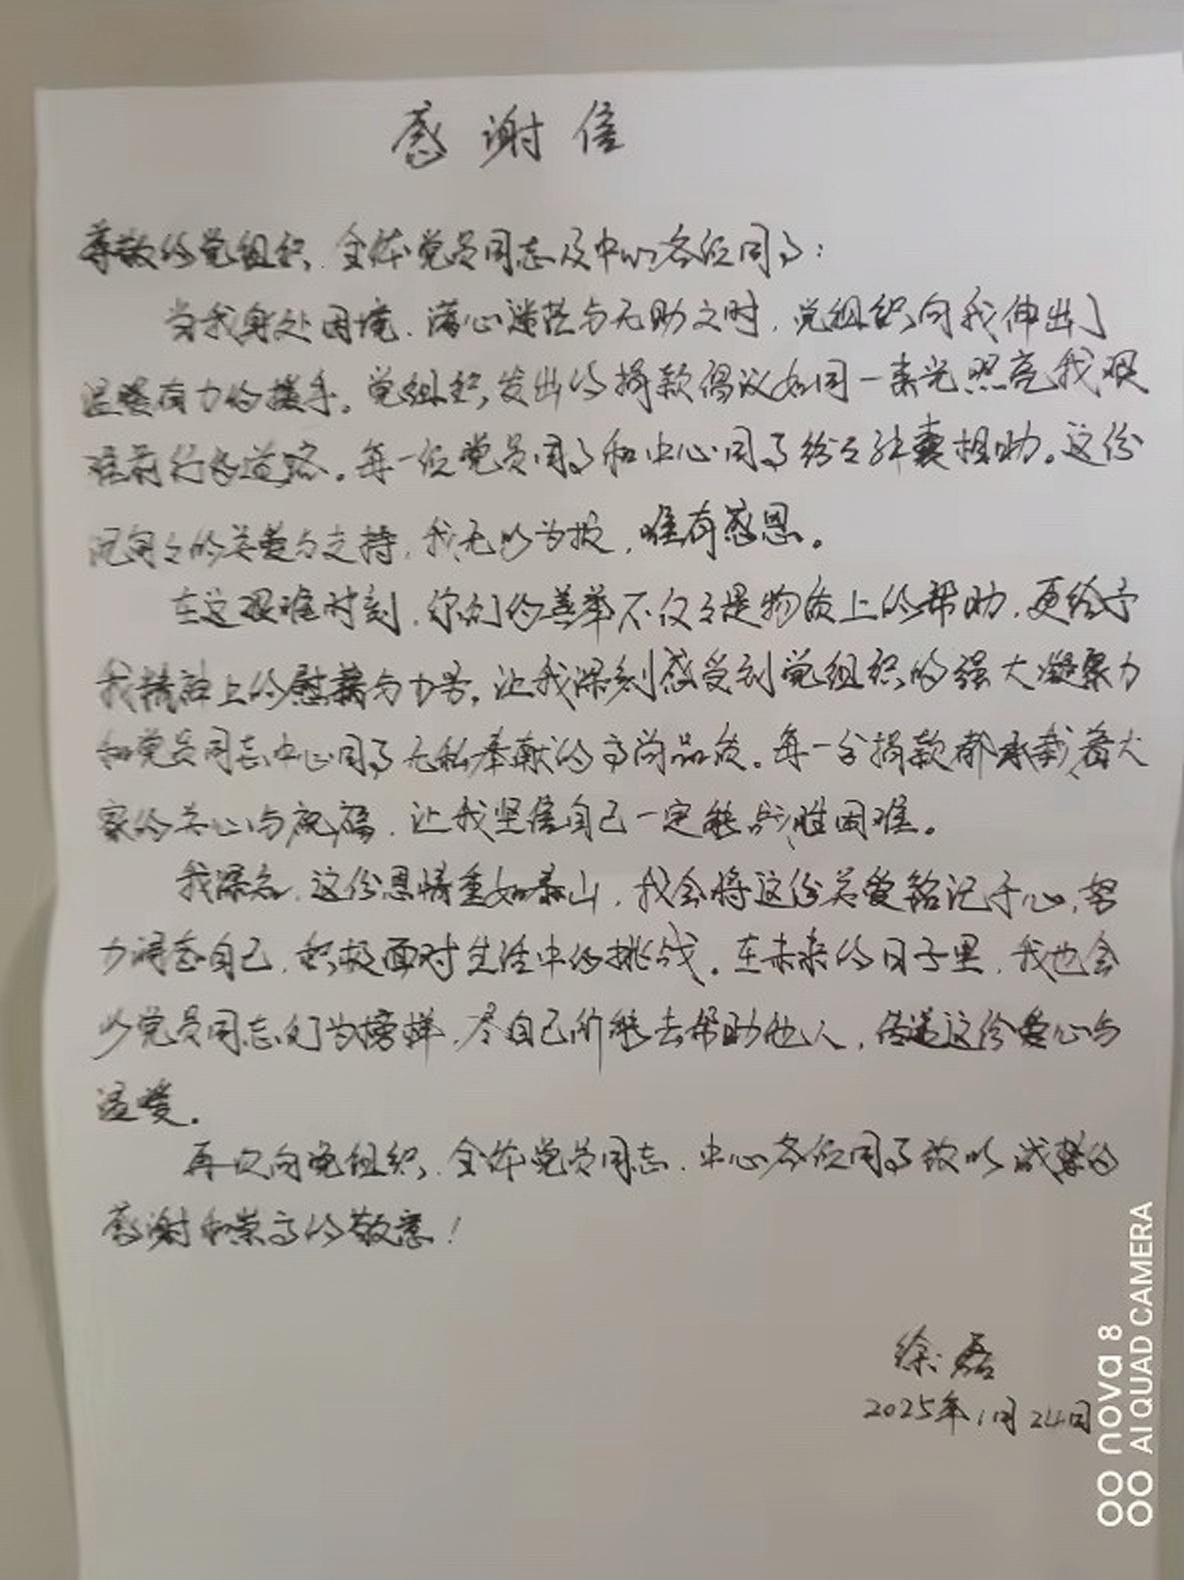 感谢信
尊敬的党组织、全体党员同志及中心各位同事:
当我身处困境、满心迷茫与无助之时，党组织向我伸出了
温暖有力的援手。党组织发出的捐款倡议如同一束光照亮我艰
难前行的道路。每一位党员同事和中心同事纷纷解囊相助。这份
沉甸甸的关爱与支持，我无以为报，唯有感恩。
在这艰难时刻，你们的善举不仅仅是物质上的帮助，更给予
我精神上的慰藉与力量。让我深刻感受到党组织的强大凝聚力
和党员同志中心同事无私奉献的高尚品质。每一分捐款都承载着大
家的关心与祝福，让我坚信自己一定能战胜困难。
我深知，这份恩情重如泰山，我会将这份关爱铭记于心，努
力调整自己，积极面对生活中的挑战。在未来的日子里，我也会
以党员同志们为榜样，尽自己所能去帮助他人，传递这份爱心与
温暖。
再次向党组织、全体党员同志、中心各位同事致以诚挚的
感谢和崇高的敬意!
徐磊
2025年1月24日
nova 8
AI QUAD CAMERA